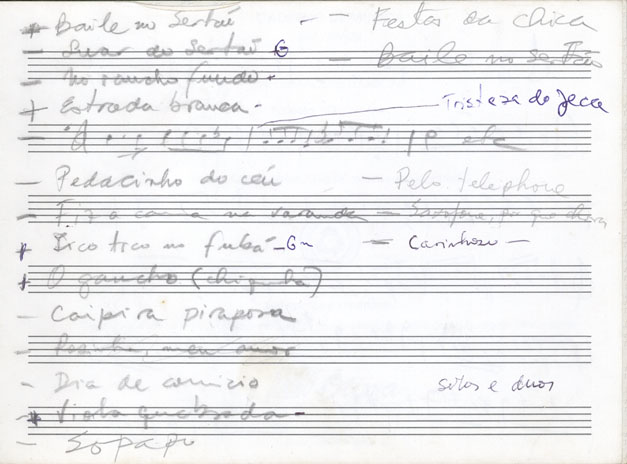 + Baile no Sertão
- Luar do Sertão G
- No rancho fundo -
+ Estrada branca -
etc
- Pedacinho do céu
- Fiz a cama na varanda
+ Tico tico no fubá - Gm
+ O gaucho (chiquinha)
- Caipira pirapora
- Rosinha, meu amor
- Dia de comicio
+ Viola quebrada -
- Sopapo
- Festas da chica
- Baile no Sertão
Tristeza do Jeca
- Pelo telephone
- Saxofone, por que choras
- Carinhoso -
solos e duos